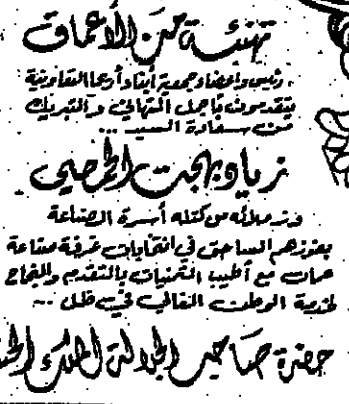 تهنئة من الأعماق
رئيس وأعضاء جمعية أبناء أرحا التعاونية
يتقدمون بأجمل التهاني والتبريك
من سعادة السيد ...
زياد بهجت الحمصي
وزملائه من كتلة أسرة الصناعة
بفوزهم الساحق في انتخابات غرفة صناعة
عمان مع أطيب التمنيات بالتقدم والنجاح
لخدمة الوطن الغالي في ظل ...
حضرة صاحب الجلالة الملك